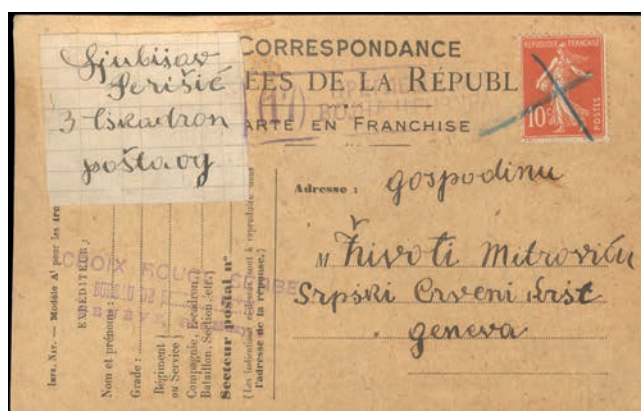 Ljubisav
Perišić
3 Eskadron
pošta 09
CORRESPONDANCE
ÉES DE LA RÉPUBL
(17)
ARTE EN FRANCHISE
REPUBLIQUE FRANÇAISE
10c
POSTES
Adresse : gospodinu
M Životi Mitroviću
Srpski Crveni krst
Geneva
Imp. Nat. — Modèle A1 pour les
EXPÉDITEUR :
Nom et prénoms :
Grade :
Régiment
ou Service)
Compagnie, Escadron,
Bataillon, Section, etc.
Secteur postal n°
(Les indications à reproduire dans
l'adresse de la réponse.)
CROIX ROUGE